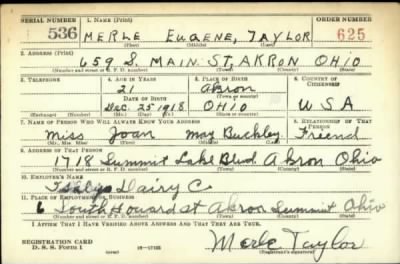 SERIAL NUMBER 1. NAME (Print) ORDER NUMBER
536 MERLE EUGENE, TAYLOR 625
(First) (Middle) (Last)
2. ADDRESS (Print)
659 S. MAIN ST. AKRON OHIO
(Number and street or R. F. D. number) (Town) (County) (State)
3. TELEPHONE 4. AGE IN YEARS 5. PLACE OF BIRTH 6. COUNTRY OF CITIZENSHIP
21 Akron
(Town or county)
DATE OF BIRTH
Dec. 25 1918 OHIO USA
(Exchange) (Number) (Mo.) (Day) (Yr.) (State or country)
7. NAME OF PERSON WHO WILL ALWAYS KNOW YOUR ADDRESS 8. RELATIONSHIP OF THAT PERSON
Miss Joan May Buckley Freend
(Mr., Mrs., Miss) (First) (Middle) (Last)
9. ADDRESS OF THAT PERSON
1718 Summit Lake Blvd. Akron Ohio
(Number and street or R. F. D. number) (Town) (County) (State)
10. EMPLOYER'S NAME
Dairy C
11. PLACE OF EMPLOYMENT OR BUSINESS
6 South Howard st Akron Summit Ohio
(Number and street or R. F. D. number) (Town) (County) (State)
I AFFIRM THAT I HAVE VERIFIED ABOVE ANSWERS AND THAT THEY ARE TRUE.
REGISTRATION CARD
D. S. S. FORM 1 Merle Taylor
(Registrant's signature)